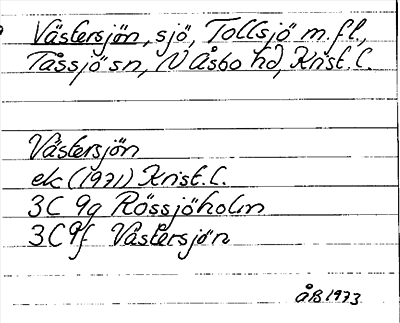 Västersjön, sjö, Tollsjö m.fl.,
Tåssjö sn, N Åsbo hd, Krist. l.
Västersjön
ek (1971) Krist. l.
3C 9g Rössjöholm
3C 9f Västersjön
ÅB 1973